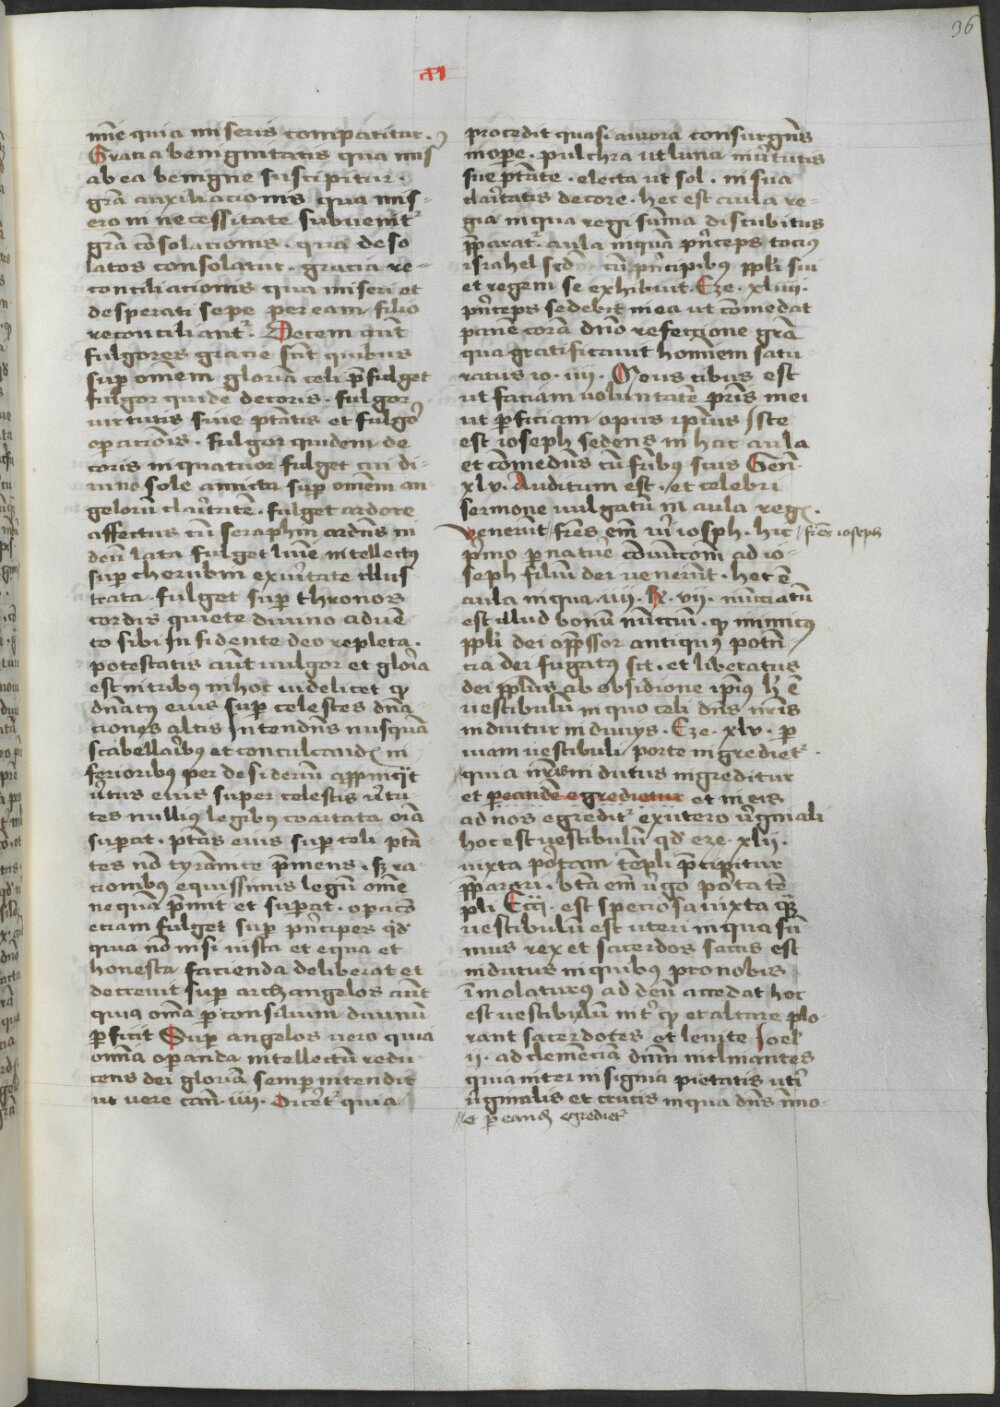 96
m̄e quia miseris compatitur.
Gracia benignitatis qua mis̄
ab ea benigne suscipitur.
grā auxiliacionis qua mis-
erom in necessitate subuenit᷑
grā cōsolacionis. qua deso
latos consolatur. gracia re-
conciliacionis qua miseri et
desperati sepe per eam filio
reconciliant᷑. Decem aūt
fulgores gracie sūt quibus
sup̄ om̄em gloriā celi p̄fulget
fulgor quidē decoris. fulgor
uirtutis siue ptātis et fulgōr
op̄acionis. fulgor quidem de
coris in quatuor fulget cui di-
uino sole amicta sup̄ om̄em an
gelorū claritatē. fulget ardore
affectus cū seraphin ardēns in
deū lata fulget luīe intellectꝰ
sup̄ cherubin ex ūitate illus
trata. fulget sup̄ thronos
cordis quiete diuino aduē
to sibi in sidente deo repleta.
potestatis aūt uulgor et glōia
est in tribus in hoc uidelicet ꝙ
dn̄atꝰ eius sup̄ celestes dn̄a
ciones altis intendēns nusquā
scabellāibꝰ et conculcandꝭ in
ferioribꝰ per desideriū appinq̄t
ūtus eius super celestis ūtu
tes nullius legibus coartata oīa
sup̄at. ptās eius sup̄ celi ptā
tes nō tyrānice p̄mens. sꝫ ra
cionibus equissimis legū om̄e
nequā p̄mit et sup̄at. op̄acō
eciam fulget sup̄ p̄ncipes qd̓
quia nō nisi iusta et equa et
honesta facienda deliberat et
decreuit sup̄ archangelos aūt
quia om̄a p̄ consilium diuinū
p̄ficit Sup̄ angelos uero quia
om̄ia op̄anda intellectū redu
cens dei gloriā semp̄ intendit
ut uere can̄. iiij. Dicet᷑ quia
procedit quasi aurora consurgēns
in op̄e. pulchra ut luna in ūtutis
sue ptāte. electa ut sol. in sua
claritatis decore. hec est aula re-
gia in qua regi sum̄a discubitus
p̄parat᷑. aula in quā p̄nceps tociꝰ
israhel sed̄ cū p̄ncipibꝰ ppl̄i sui
et regem se exhibuit. Eze. xliiij.
p̄nceps sedebit in ea ut cōmedat
panē corā dn̄o refectione grā
qua gratificauit hominem satu
ratus io. iiij. Meus cibus est
ut faciam uoluntatē pr̄is mei
ut p̄ficiam opus ip̄ius Iste
est ioseph sedens in hac aula
et cōmedēns cū fr̄ibꝰ suis Gen̄.
xlv. Auditum est. et celebri
sermone uulgatū in aula regꝭ.
Venerūt fr̄es em̄ ūi ioseph. hic
fr̄es ioseph
p̄mo p̄ nature cōditom ad io-
seph filiū dei uenerūt. hec ē
aula in qua. iiij. Rꝭ. vij. nūciatū
est illud bonū nūtciū. ꝙ inimicꝰ
ppl̄i dei opp̄ssor antiquꝰ potn̄
cia dei fugatꝰ sit. et liberatus
dei ppl̄us ab obsidione ip̄ius h̓ ē
uestibulū in quo celi dn̄s nr̄is
induitur induuijs. Eze. xlv. p̄
uiam uestibuli porte ingrediet᷑.
quia nr̄is indutus ingreditur
et p̄ eandē egredietur et in eis
ad nos egredit᷑ ex utero ūginali
hoc est uestibulū qd̓ eze. xlij.
iuxta pōtam tēpli p̄cipitur
p̄parari. btā em̄ ūgo pōta tē-
pli est speciosa iuxta quā
uestibulū est uteri in qua sū
mus rex et sacerdos sacris est
indutus in quibꝰ pro nobis
īmolaturꝰ ad deū accedat hoc
est uestibulū int᷑ qd̓ et altare plo-
rant sacerdotes et leuite Joel
ij. ad clemēcia dn̄m inclinantes
quia inter insignia pietatis uti
ūginalis et crucis in qua dn̄s īmo-
et p̄ eandē egrediet᷑